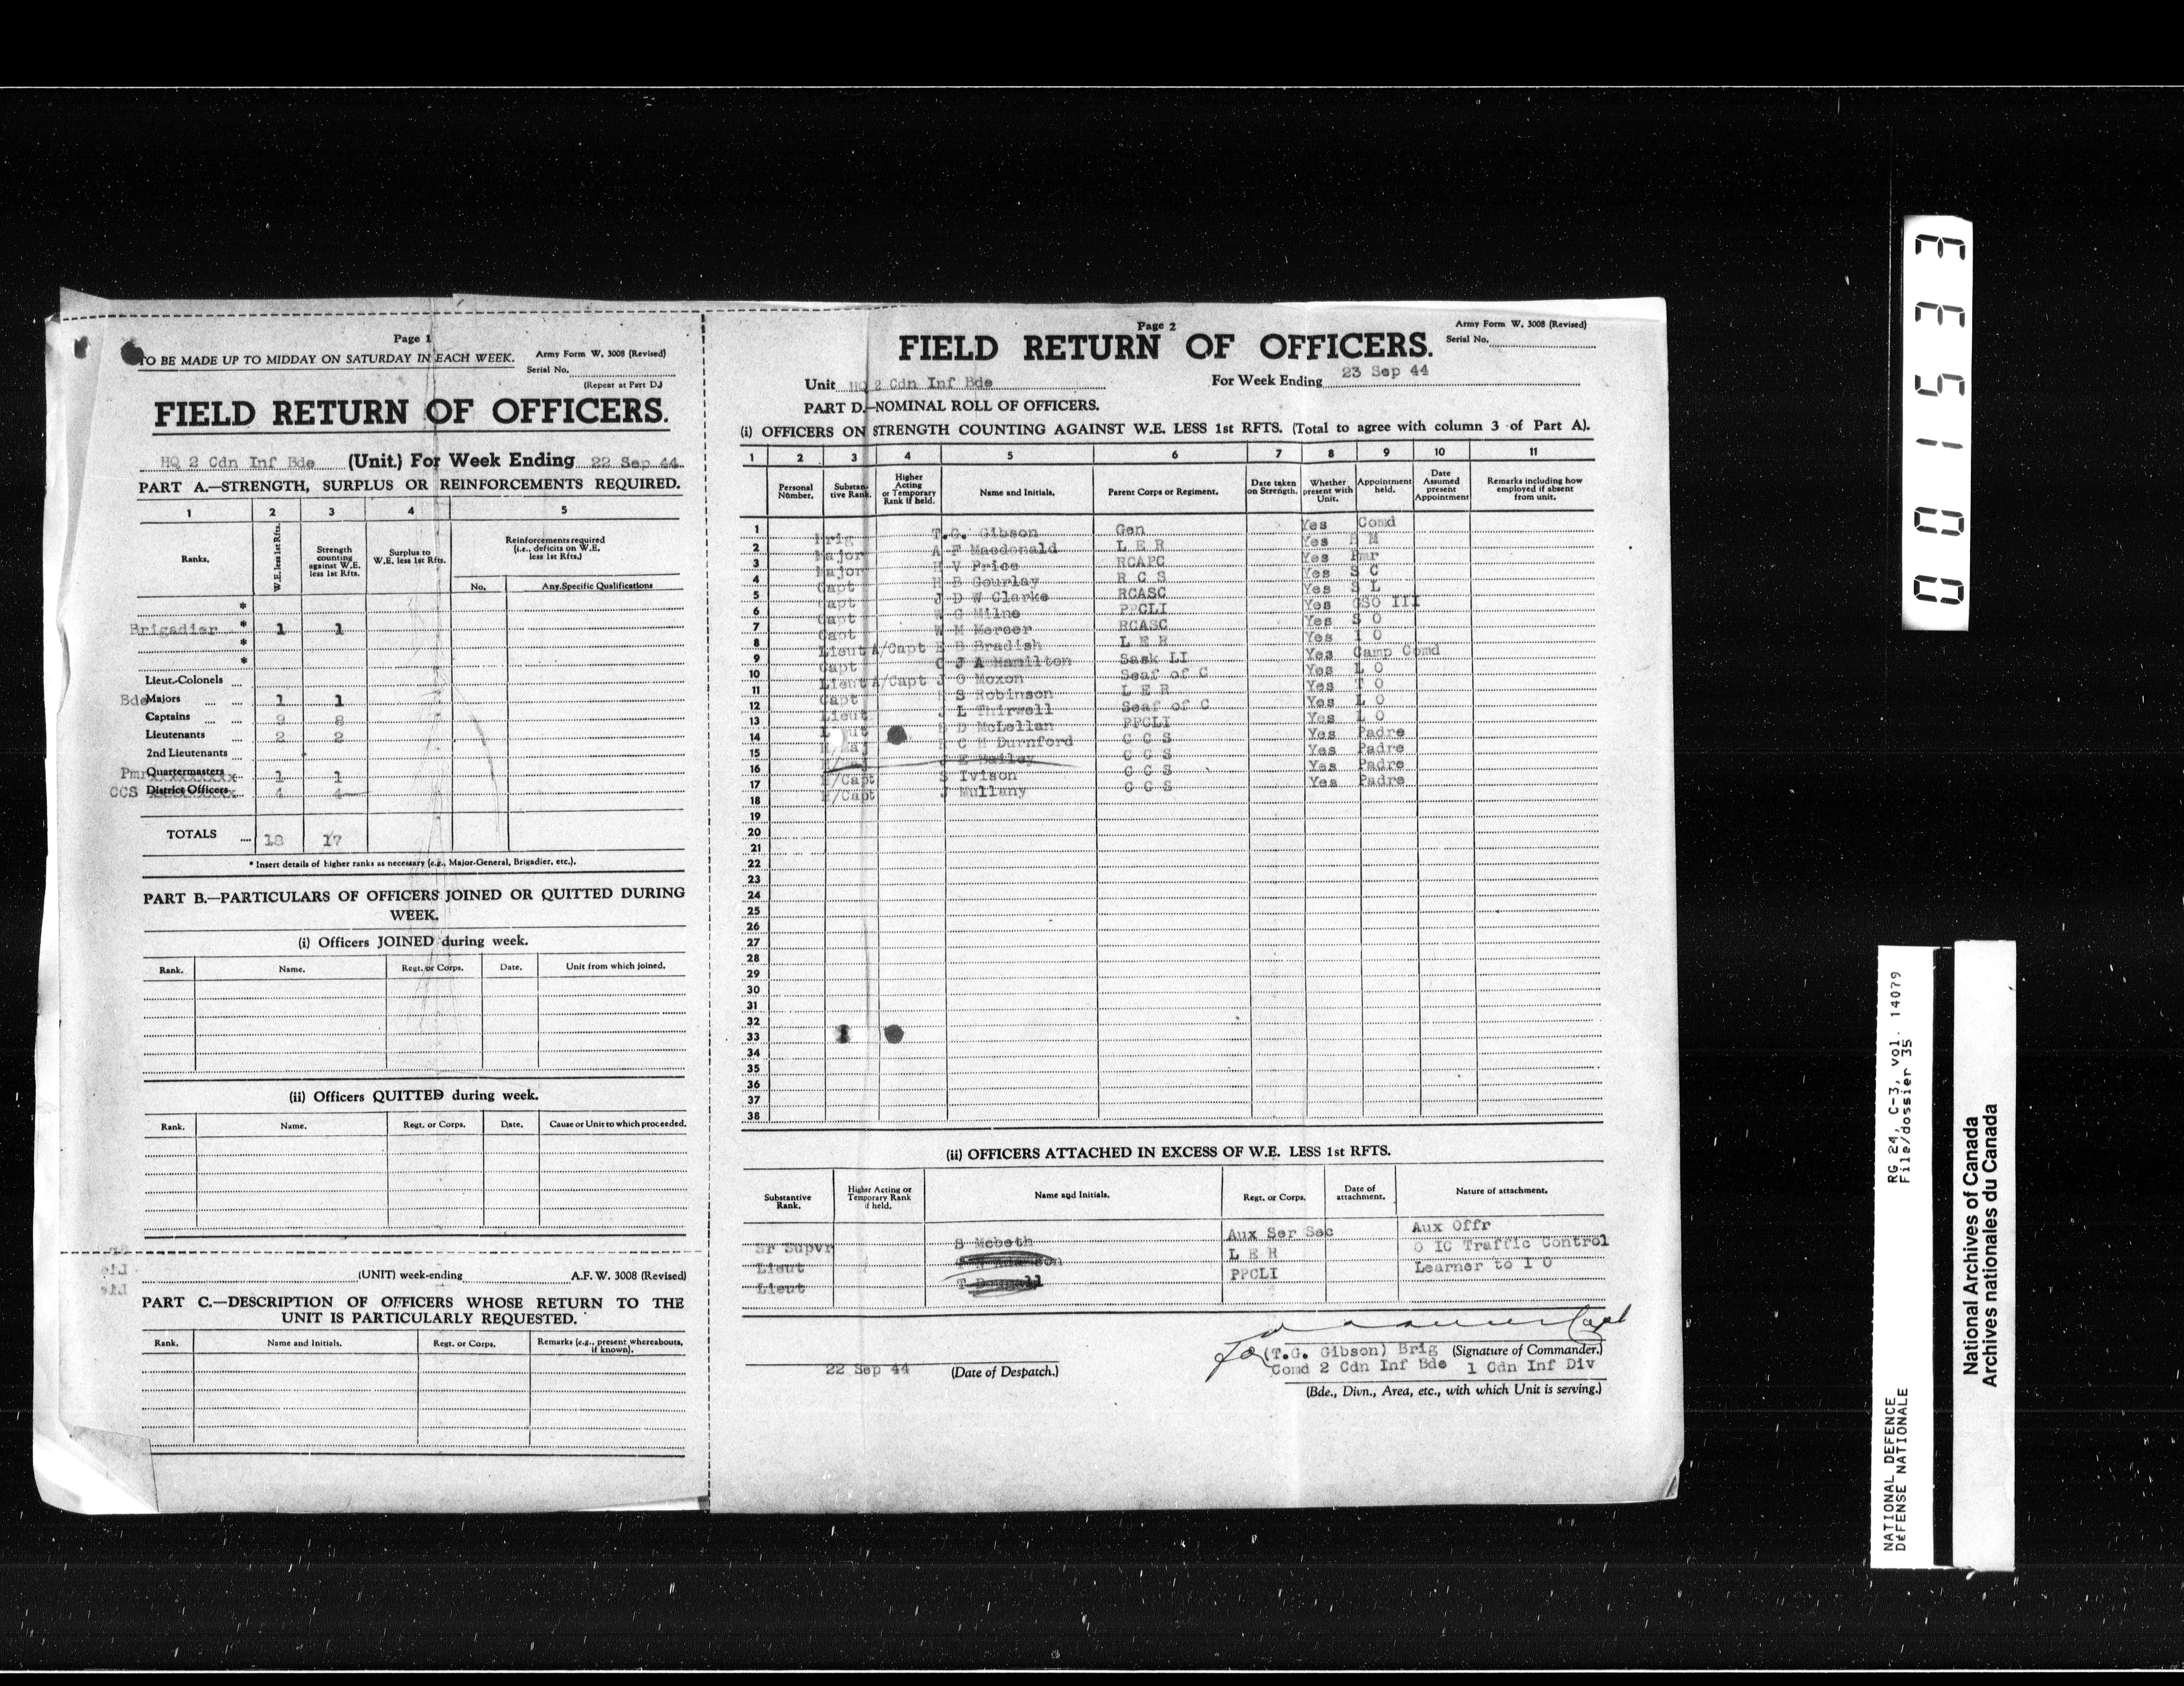 Page 1
TO BE MADE UP TO MIDDAY ON SATURDAY IN EACH WEEK.
Army Form W. 3008 (Revised)
Serial No.
(Repeat at Part D.)
FIELD RETURN OF OFFICERS.
HQ 2 Cdn Inf Bde (Unit.) For Week Ending 22 Sep 44
PART A.—STRENGTH, SURPLUS OR REINFORCEMENTS REQUIRED.
1 2 3 4 5
Ranks. W.E. less 1st Rfts. Strength counting against W.E. less 1st Rfts. Surplus to W.E. less 1st Rfts. Reinforcements required (i.e., deficits on W.E. less 1st Rfts.)
No. Any Specific Qualifications
*
Brigadier * 1 1
*
*
Lieut.-Colonels
Bde Majors 1 1
Captains 9 8
Lieutenants 2 2
2nd Lieutenants
Pmr Quartermasters 1 1
CCS District Officers 4 4
TOTALS 18 17
* Insert details of higher ranks as necessary (e.g., Major-General, Brigadier, etc.).
PART B.—PARTICULARS OF OFFICERS JOINED OR QUITTED DURING WEEK.
(i) Officers JOINED during week.
Rank. Name. Regt. or Corps. Date. Unit from which joined.
(ii) Officers QUITTED during week.
Rank. Name. Regt. or Corps. Date. Cause or Unit to which proceeded.
(UNIT) week-ending A.F. W. 3008 (Revised)
PART C.—DESCRIPTION OF OFFICERS WHOSE RETURN TO THE UNIT IS PARTICULARLY REQUESTED.
Rank. Name and Initials. Regt. or Corps. Remarks (e.g., present whereabouts, if known).
Page 2
Army Form W. 3008 (Revised)
Serial No.
FIELD RETURN OF OFFICERS.
Unit HQ 2 Cdn Inf Bde For Week Ending 23 Sep 44
PART D.—NOMINAL ROLL OF OFFICERS.
(i) OFFICERS ON STRENGTH COUNTING AGAINST W.E. LESS 1st RFTS. (Total to agree with column 3 of Part A).
1 2 3 4 5 6 7 8 9 10 11
Personal Number. Substantive Rank. Higher Acting or Temporary Rank if held. Name and Initials. Parent Corps or Regiment. Date taken on Strength. Whether present with Unit. Appointment held. Date Assumed present Appointment Remarks including how employed if absent from unit.
1 Brig T.G. Gibson Gen Yes Comd
2 Major A F Macdonald L E R Yes B M
3 Major H V Price RCAPC Yes Pmr
4 Capt H B Gourlay R C S Yes S C
5 Capt J D W Clarke RCASC Yes S L
6 Capt W G Milne PPCLI Yes GSO III
7 Capt W M Mercer RCASC Yes S O
8 Lieut A/Capt E B Bradish L E R Yes I O
9 Capt C J A Hamilton Sask LI Yes Camp Comd
10 Lieut A/Capt J O Moxon Seaf of C Yes L O
11 Capt S Robinson L E R Yes T O
12 Lieut J L Thirwell Seaf of C Yes L O
13 Lieut D McLellan PPCLI Yes L O
14 H/Maj C H Durnford C C S Yes Padre
15 J E Bailey C C S Yes Padre
16 H/Capt S Ivison C C S Yes Padre
17 H/Capt J Mullany C C S Yes Padre
18
19
20
21
22
23
24
25
26
27
28
29
30
31
32
33
34
35
36
37
38
(ii) OFFICERS ATTACHED IN EXCESS OF W.E. LESS 1st RFTS.
Substantive Rank. Higher Acting or Temporary Rank if held. Name and Initials. Regt. or Corps. Date of attachment. Nature of attachment.
Sr Supvr S Mcbeth Aux Ser Sec Aux Offr
Lieut L E R O IC Traffic Control
Lieut PPCLI Learner to I O
Capt
for (T.G. Gibson) Brig (Signature of Commander.)
Comd 2 Cdn Inf Bde 1 Cdn Inf Div
22 Sep 44 (Date of Despatch.)
(Bde., Divn., Area, etc., with which Unit is serving.)
001533
NATIONAL DEFENCE RG 24, C-3, vol. 14079
DÉFENSE NATIONALE File/dossier 35
National Archives of Canada
Archives nationales du Canada